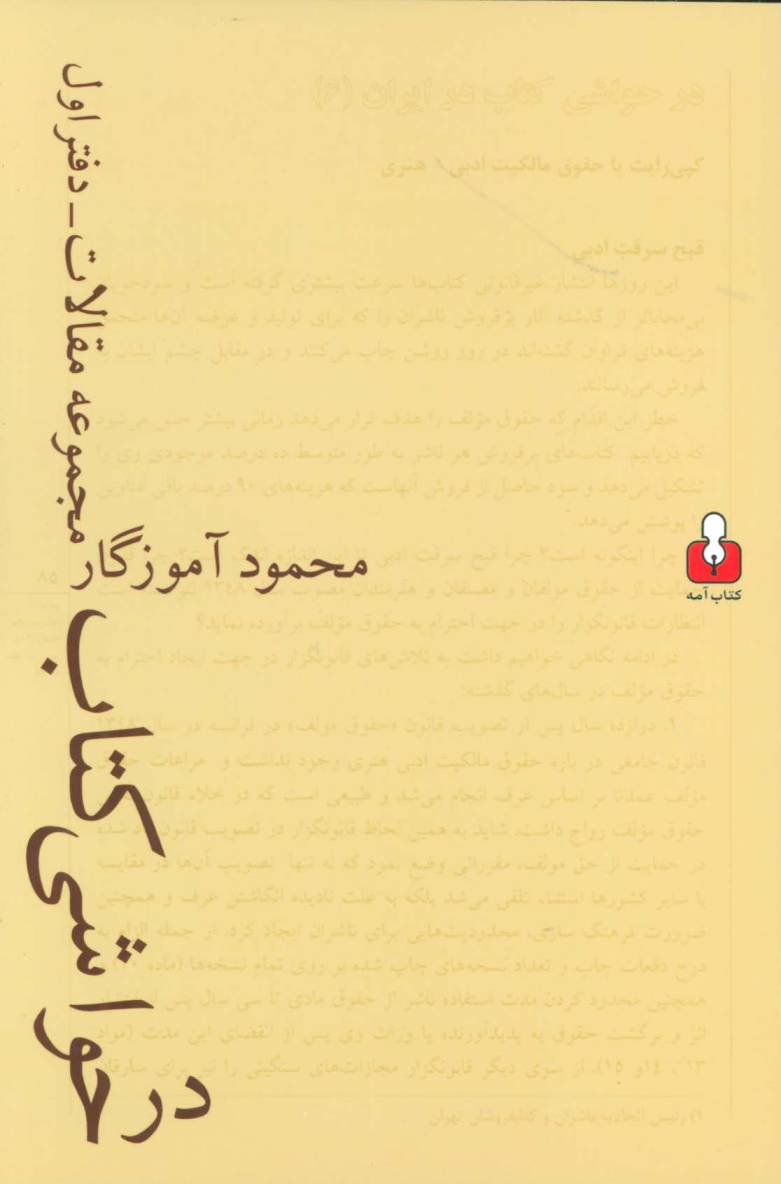 در حواشی کتاب
مجموعه مقالات ـ دفتر اول
محمود آموزگار
کتاب آمه
در حواشی کتاب در ایران (۶)
کپی‌رایت یا حقوق مالکیت ادبی ـ هنری
قبح سرقت ادبی
این روزها انتشار غیرقانونی کتاب‌ها سرعت بیشتری گرفته است و
بی‌محاباتر از گذشته آثار پرفروش ناشران را که برای تولید و عرضه آن‌ها متحمل
هزینه‌های فراوان گشته‌اند در روز روشن چاپ می‌کنند و در مقابل چشم ایشان به
فروش می‌رسانند.
خطر این اقدام که حقوق مؤلف را هدف قرار می‌دهد زمانی بیشتر حس می‌شود
که دریابیم کتاب‌های پرفروش هر ناشر به طور متوسط ده درصد موجودی وی را
تشکیل می‌دهد و سود حاصل از فروش آنهاست که هزینه‌های ۹۰ درصد باقی عناوین
را پوشش می‌دهد.
چرا اینگونه است؟ چرا قبح سرقت ادبی
حمایت از حقوق مؤلفان و مصنفان و هنرمندان مصوب سال ۱۳۴۸
انتظارات قانونگزار را در جهت احترام به حقوق مؤلف برآورده نماید؟
در ادامه نگاهی خواهیم داشت به تلاش‌های قانونگزار در جهت ایجاد احترام به
حقوق مؤلف در سال‌های گذشته:
۱. دوازده سال پس از تصویب قانون «حقوق مولف» در فرانسه در سال ۱۳۴۸
قانون جامعی در باره حقوق مالکیت ادبی هنری وجود نداشت و مراعات حقوق
مؤلف عمدتا بر اساس عرف انجام می‌شد و طبیعی است که در خلاء قانون
حقوق مؤلف رواج داشت. شاید به همین لحاظ قانونگزار در تصویب قانون یاد شده
در حمایت از حق مولف، مقرراتی وضع نمود که نه تنها تصویب آن‌ها در مقایسه
با سایر کشورها استثناء تلقی می‌شد بلکه به علت نادیده انگاشتن عرف و همچنین
ضرورت فرهنگ سازی، محدودیت‌هایی برای ناشران ایجاد کرد. از جمله الزام به
درج دفعات چاپ و تعداد نسخه‌های چاپ شده بر روی تمام نسخه‌ها (ماده
همچنین محدود کردن مدت استفاده ناشر از حقوق مادی تا سی سال پس از
اثر و برگشت حقوق به پدیدآورنده یا وراث وی پس از انقضای این مدت (مواد
۱۳، ۱۴ و ۱۵). از سوی دیگر قانونگزار مجازات‌های سنگینی را نیز برای سارقان
۱) رئیس اتحادیه ناشران و کتابفروشان تهران
۸۵